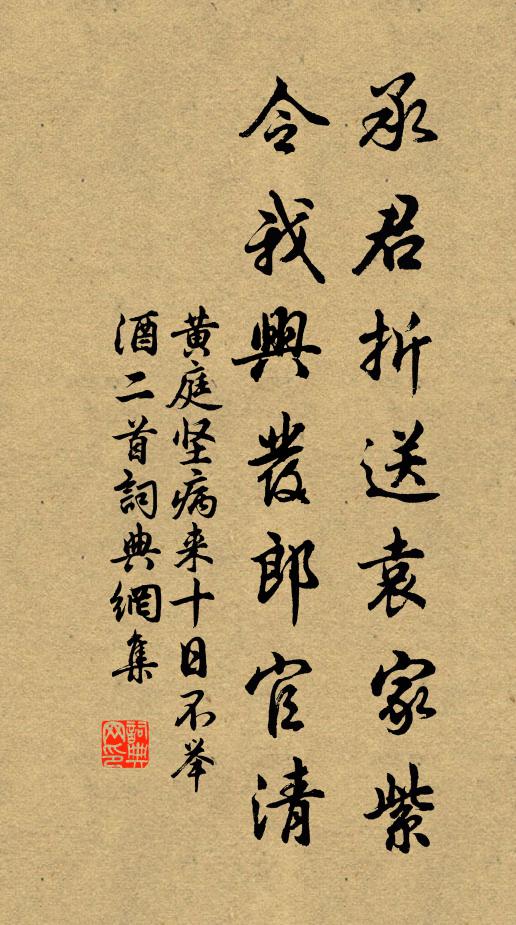 承君折送袁家紫
令我興發郎官清
黄庭坚病来十日不举
酒二首詞典網集
詞典网印